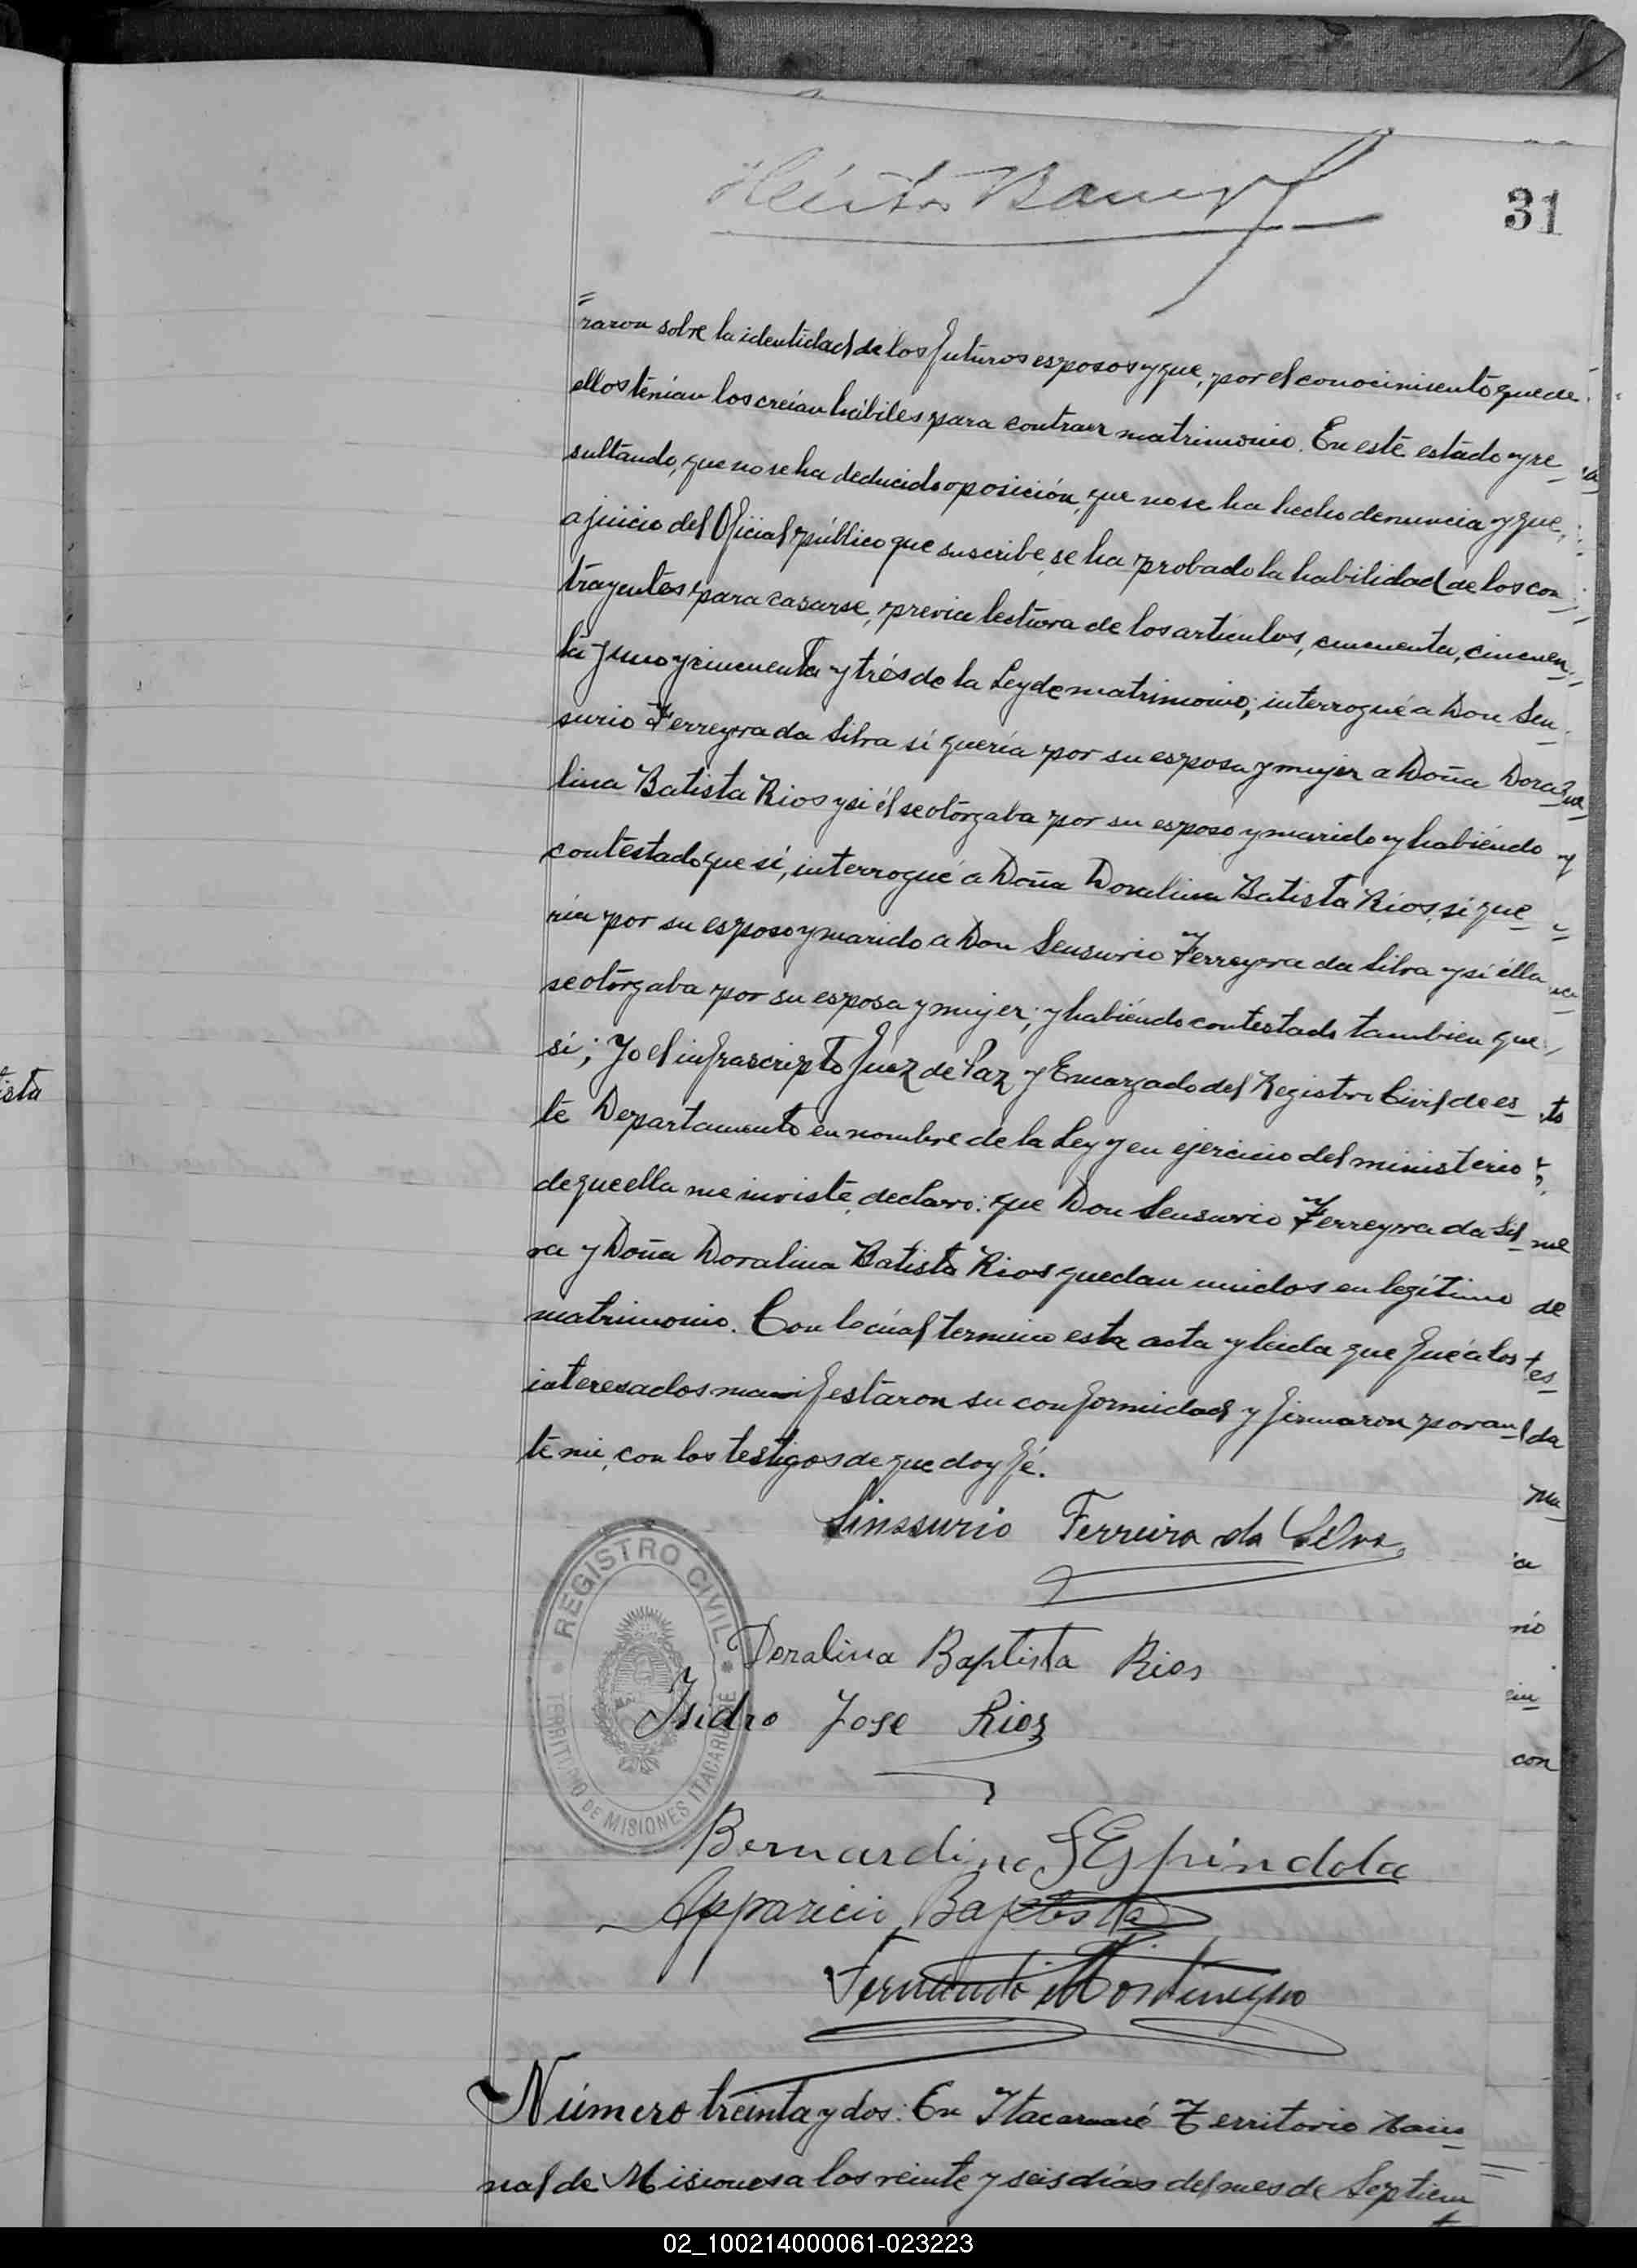 31
raron sobre la identidad de los futuros esposos y que, por el conocimiento que de
ellos tenían los creían hábiles para contraer matrimonio. En este estado y re
sultando, que no se ha deducido oposición, que no se ha hecho denuncia y que,
a juicio del Oficial público que suscribe, se ha probado la habilidad de los con
trayentes para casarse, previa lectura de los artículos, cincuenta, cincuen
ta y uno y cincuenta y trés de la Ley de matrimonio; interrogué a Don Sen
surio Ferreyra da Silva si quería por su esposa y mujer a Doña Dora
lina Batista Rios y si él se otorgaba por su esposo y marido y habiéndo
contestado que sí, interrogué a Doña Doralina Batista Rios, si que
ría por su esposo y marido a Don Sensurio Ferreyra da Silva y si élla
se otorgaba por su esposa y mujer; y habiéndo contestado tambien que
sí; Yo el infrascripto Juez de Paz y Encargado del Registro Civil de es
te Departamento en nombre de la Ley y en ejercicio del ministerio
de que ella me inviste, declaro: que Don Sensurio Ferreyra da Sil
va y Doña Doralina Batista Rios quedan unidos en legítimo
matrimonio. Con lo cúal termino esta acta y leida que fué a los
interesados manifestaron su conformidad y firmaron por an
te mi, con los testigos de que doy fé.
Sinssurio Ferreira da Silva
REGISTRO CIVIL
TERRITORIO DE MISIONES ITACARUARE
Doralina Baptista Rios
Isidro Jose Rios
Bernardino S Espindola
Apparicio Baptista
Fernando Montenegro
Número treinta y dos: En Itacaruaré Territorio Nacio
nal de Misiones a los veinte y seis días del mes de Septiem
02_100214000061-023223